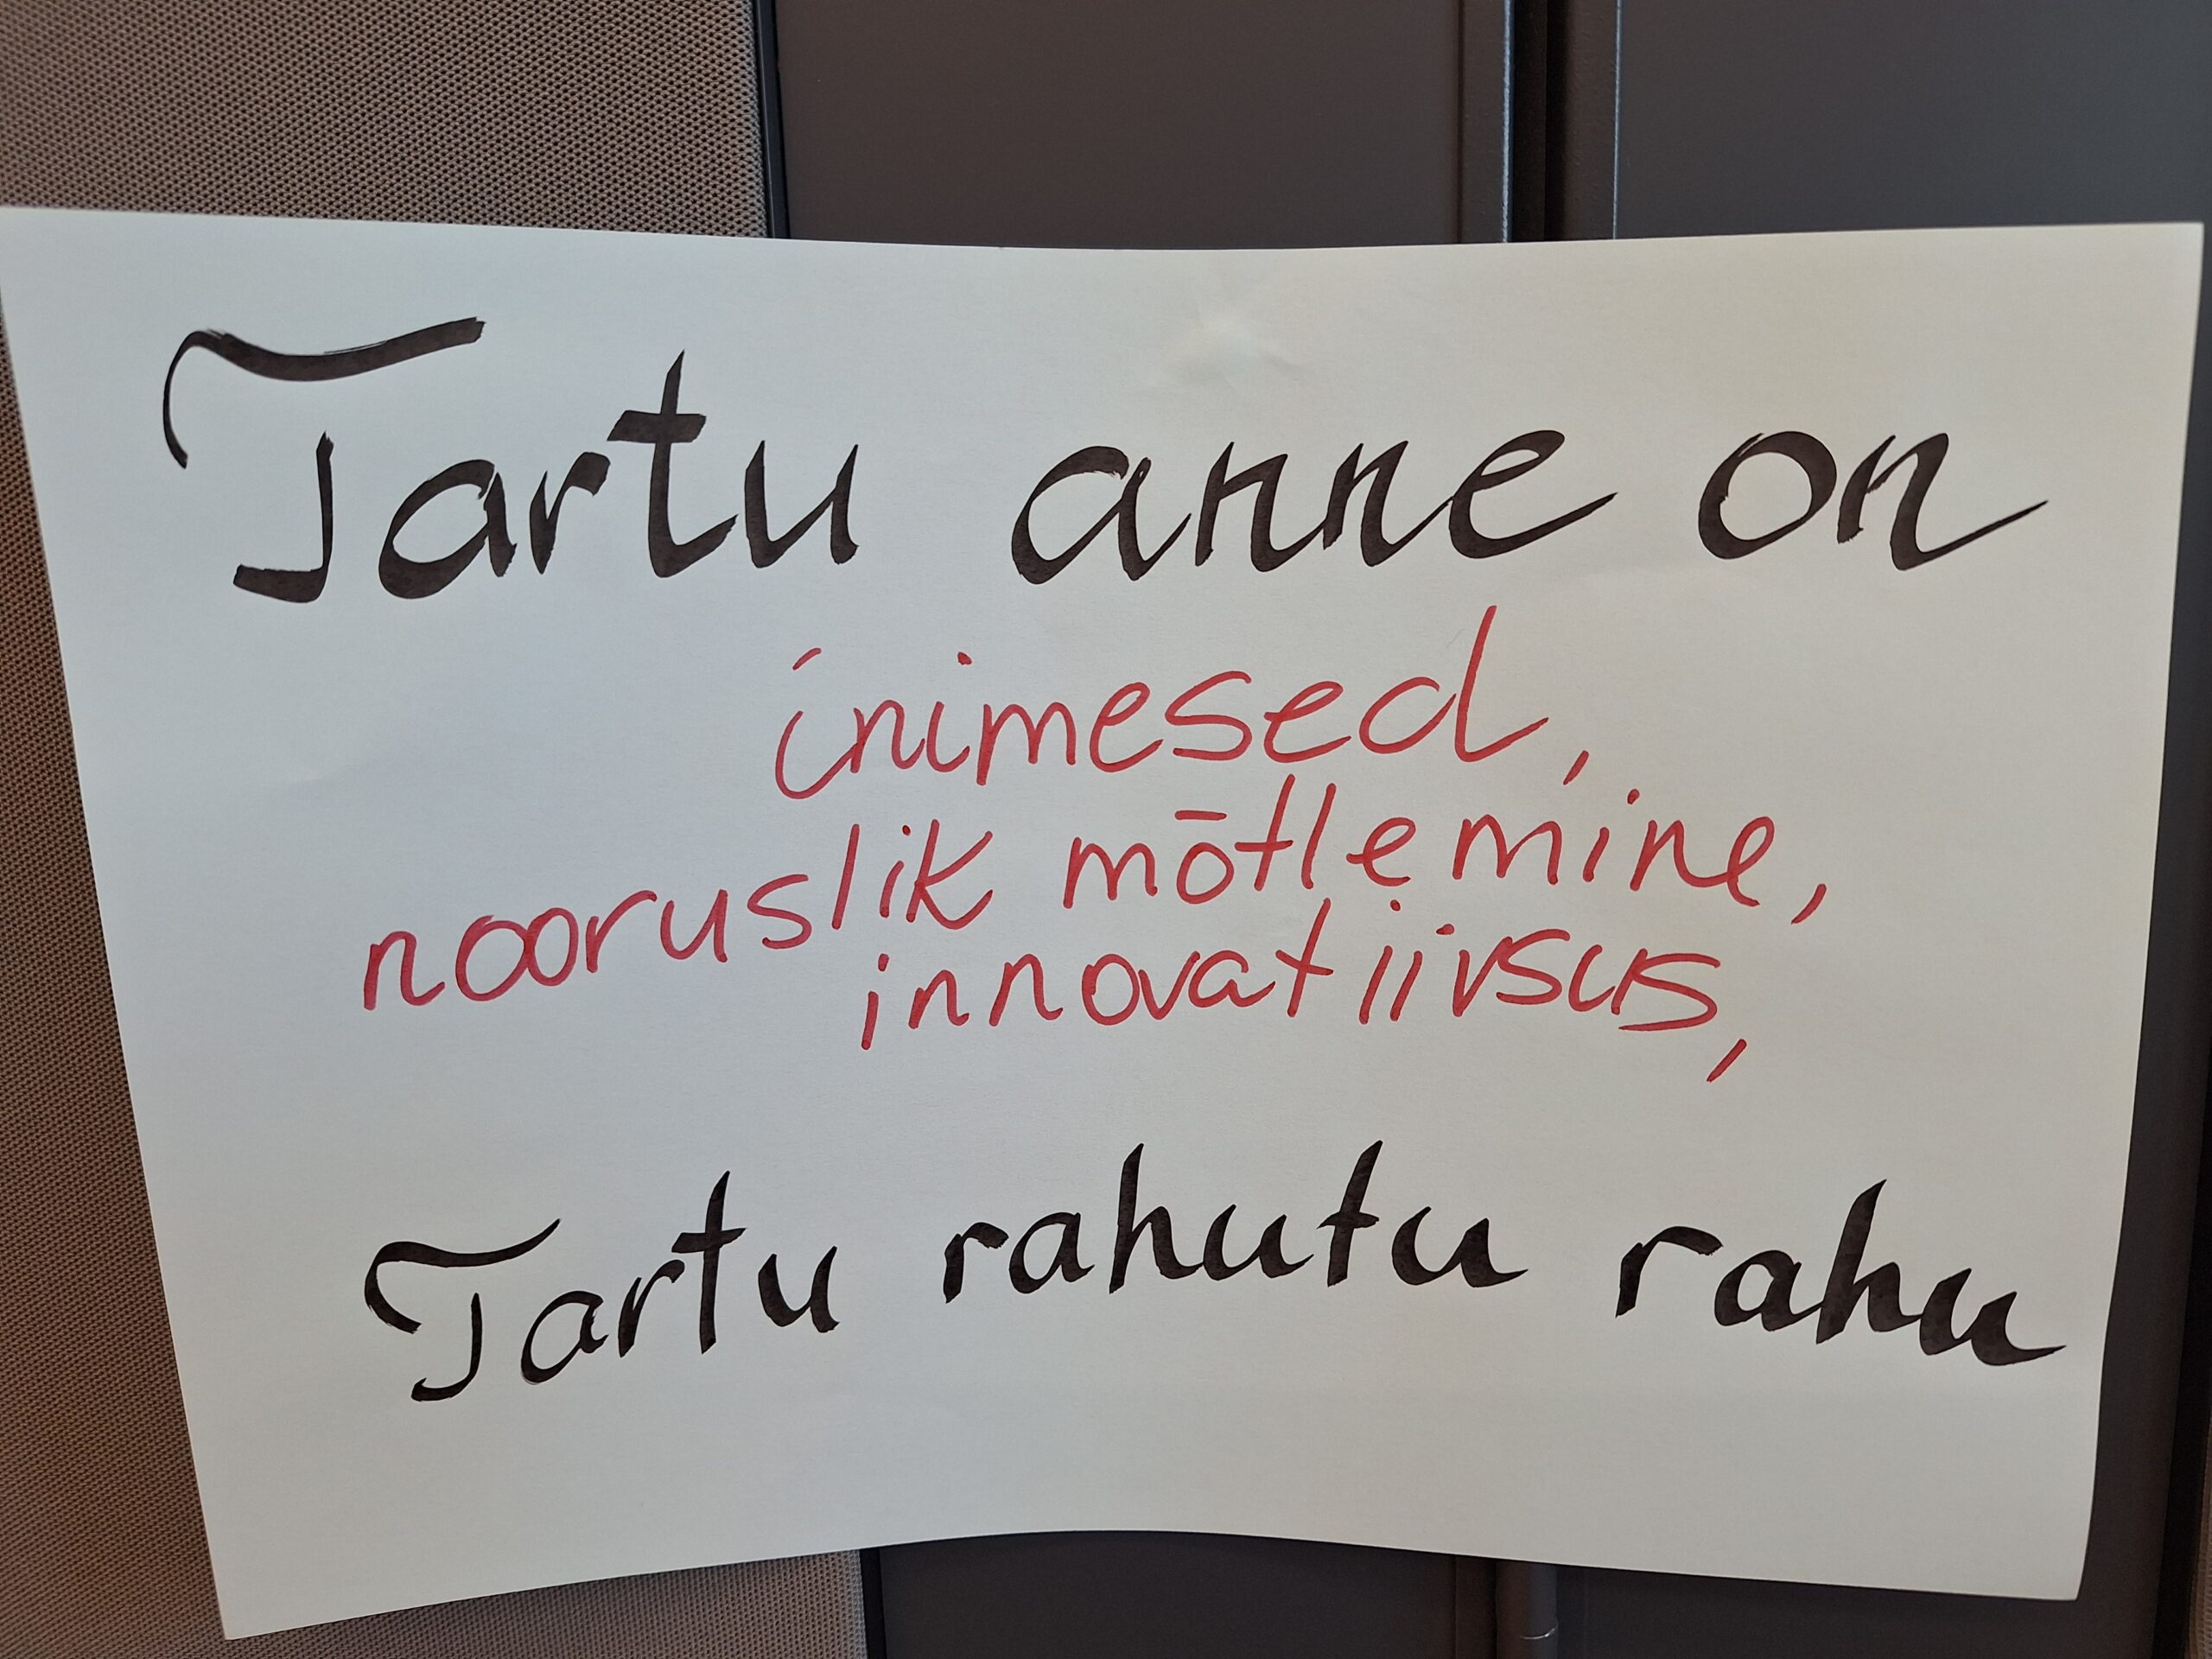 Tartu anne on
inimesed,
nooruslik mõtlemine,
innovatiivsus,
Tartu rahutu rahu